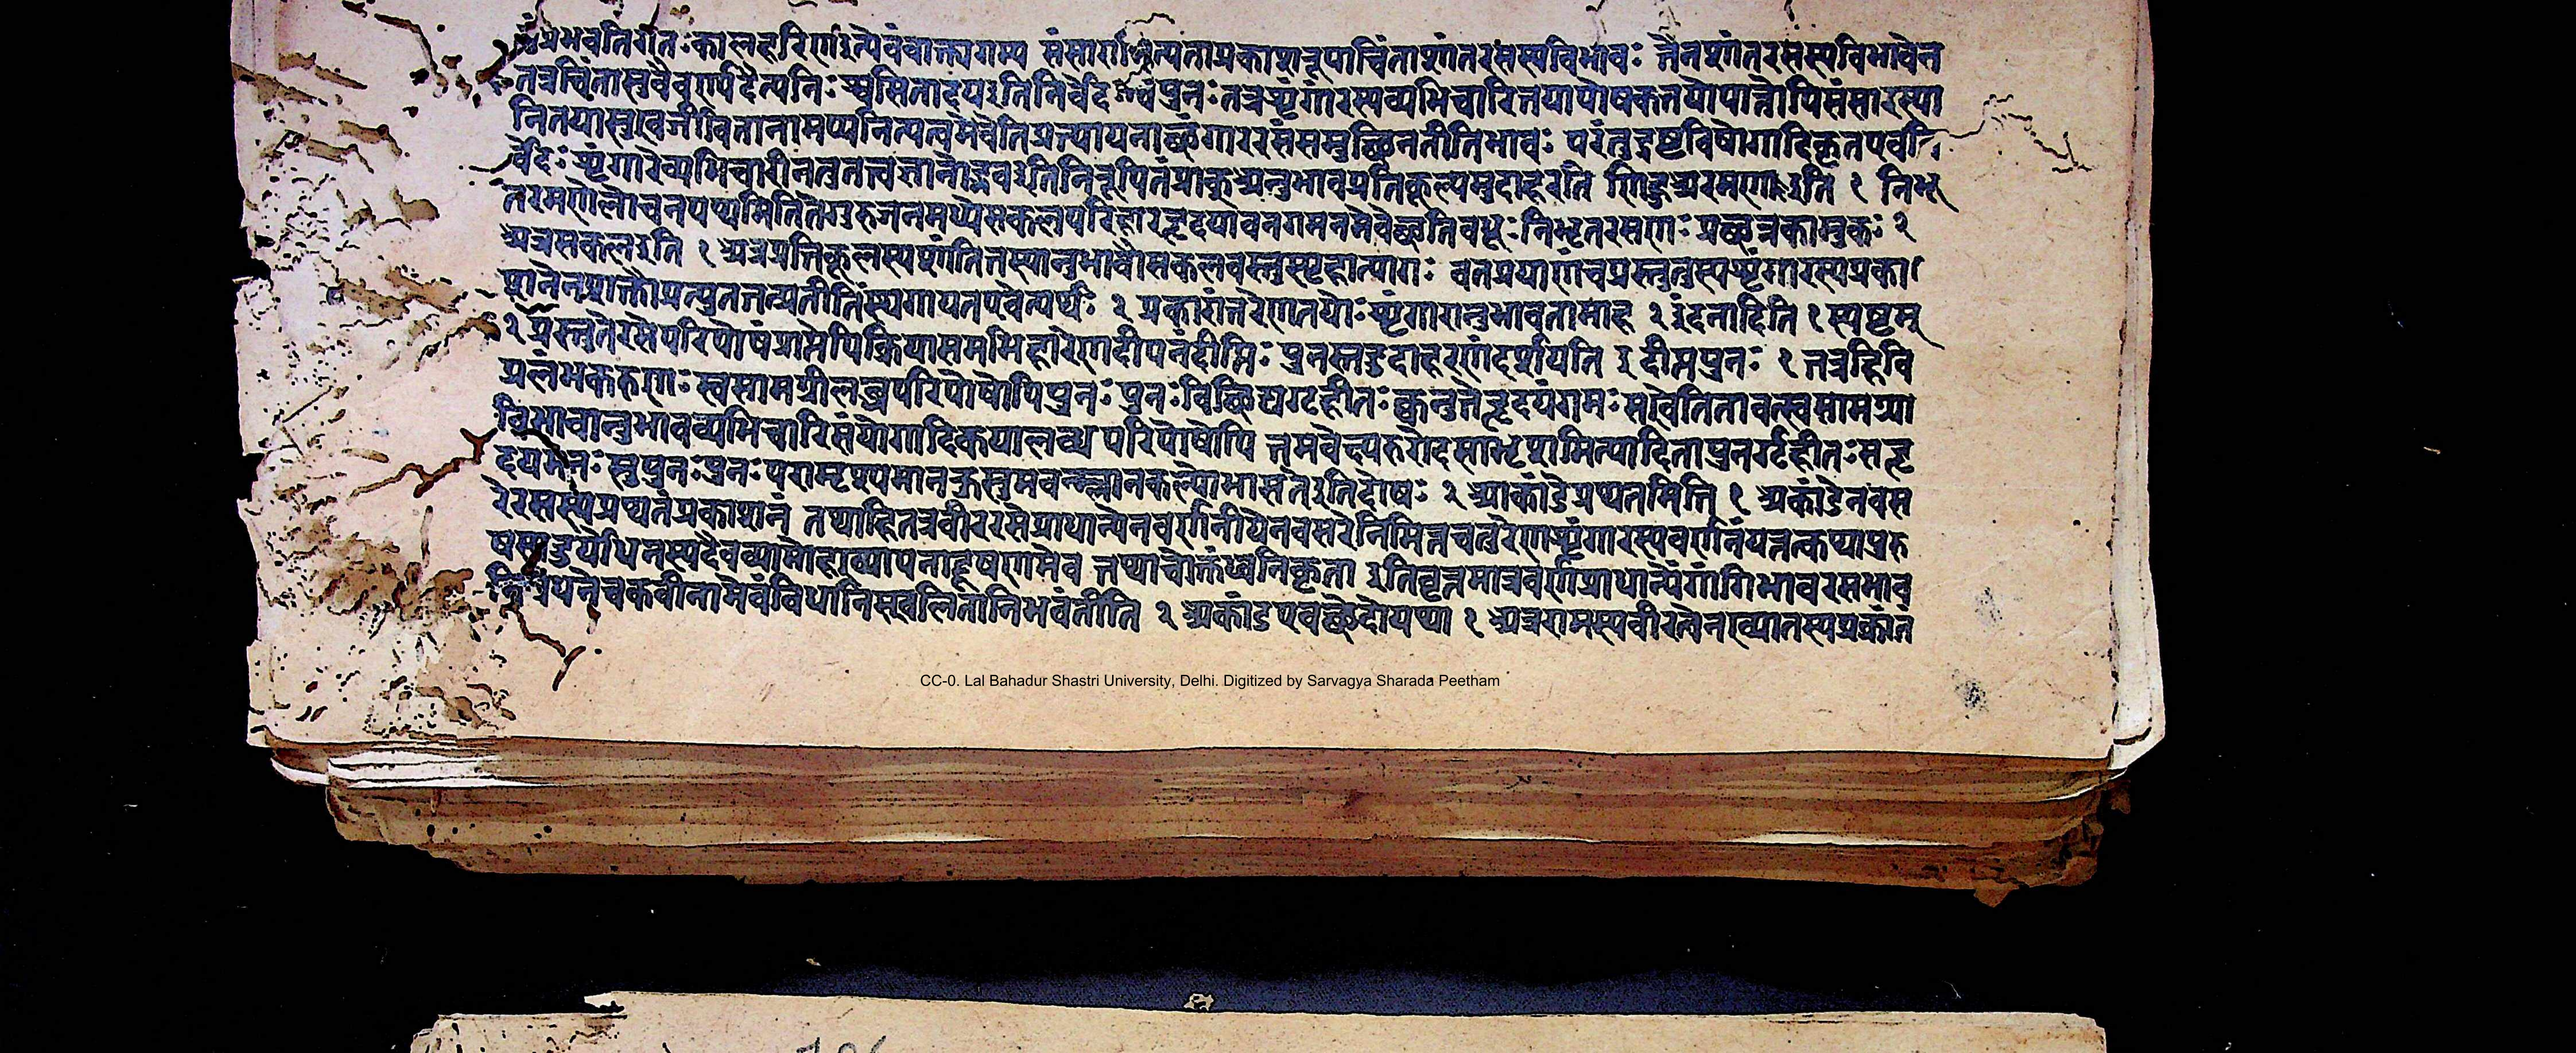 प्रभवतिगतःकालहरिणइत्येवंवाक्यागम्य संसार नित्यताप्रकाशरूपाचिंताशांतरसस्यविभावः तेनशांतरसस्यविभावेन
तत्रचिंतासुवैवर्ण्यदैन्यनिःश्वसितादयइतिनिर्वेद पुनःतत्रशृंगारस्यव्यभिचारितयापोषकतयोपात्तोपिसंसारस्या
नितयासुखजीवितानामप्यनित्यत्वमेवेतिप्रत्यायनाछृंगाररसंसमुछिनतीतिभावः परंतुइष्टवियोगादिकृतएवनि
र्वेदःशृंगारेव्यभिचारीनतुतत्त्वज्ञानोद्भवइतिनिरूपितंप्राक् अनुभावप्रतिकूल्यमुदाहरति णिहुअरमणइति १ निभृ
तरमणेलोचनपथमितितेगुरुजनमध्येसकलपरिहारहृदयावनगमनमेवेछतिवधूः निभृतरमणः प्रछन्नकामुकः २
अत्रसकलइति १ अत्रप्रतिकूलस्यशांतितस्यानुभावौसकलवस्तुस्पृहात्यागः वनप्रयाणंचप्रस्तुतस्यशृंगारस्यप्रका
शनेनशक्तोप्रत्युततत्प्रतीतिंस्थगायतएवेत्यर्थः २ प्रकारांतरेणतयोःशृंगारानुभावतामाह २ इंदनादिति १ स्पष्टम्
२ प्रस्तुतेरसेपरिपोषंप्राप्तेपिक्रियासमभिहारेणदीपनंदीप्तिः पुनस्तदुदाहरणंदर्शयति इ दीप्तपुनः १ तत्रहिवि
प्रलंभकरुणः स्वसामग्रीलब्धपरिपोषोपिपुनः पुनःविछिद्यगृहीतःक्वनुतेहृदयंगमःसखेतितावत्स्वसामग्र्या
विभावानुभावव्यभिचारिसंयोगादिकयालब्ध परिपोषोपि तमवेक्ष्यरुरोदसाभृशमित्यादिनापुनर्गृहीतःसहृ
दयमनःसुपुनःपुनःपरामृश्यमानकुसुमवन्म्लानकल्पोभासतेइतिदोषः २ आकांडेप्रथनमिति १ अकांडेनवस
रेरसस्यप्रथनंप्रकाशनं तथाहितत्रवीररसेप्राधान्येनवर्णनीयेनवसरेनिमित्तचतुरेणशृंगारस्यवर्णनंयत्तत्कथापुरु
षस्यदुर्योधनस्यदैवव्यामोहाख्यापनाद्दूषणमेव तथाचोक्तंध्वनिकृता इतिवृत्तमात्रवर्णप्राधान्येंगांगिभावरसभाव
निबंधनेचकवीनामेवंविधानिस्खलितानिभवंतीति २ अकांडएवछेदोयथा १ अत्ररामस्यवीरत्वेनख्यातस्यप्रक्रांत
CC-0. Lal Bahadur Shastri University, Delhi. Digitized by Sarvagya Sharada Peetham